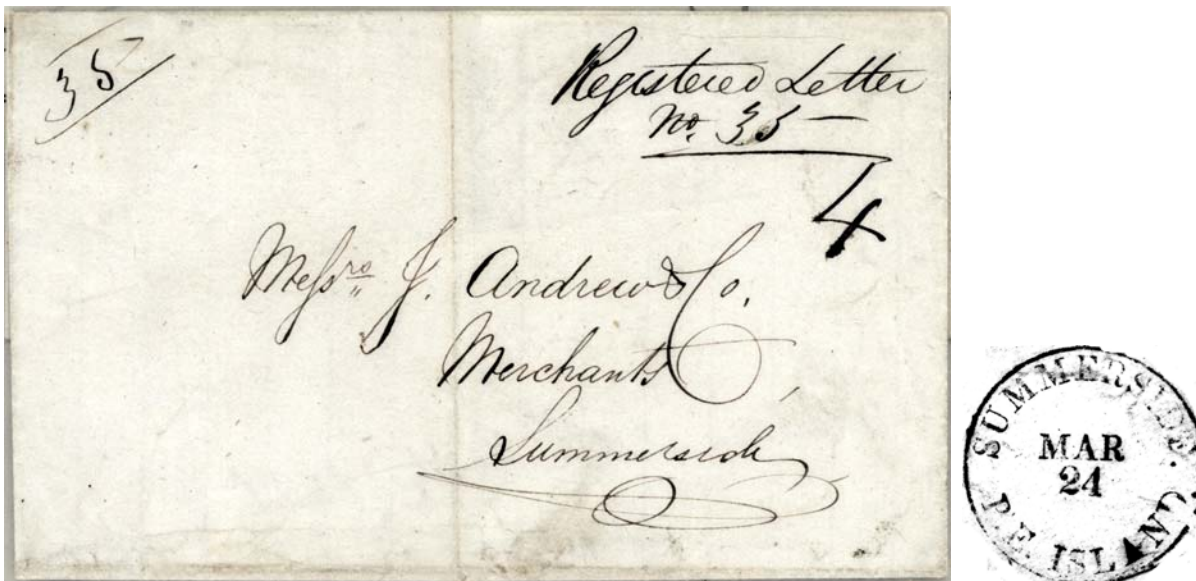 35
Registered Letter
No. 35 —
4
Messrs. J. Andrew & Co.
Merchants,
Summerside
SUMMERSIDE.
MAR
24
P.E ISLAND.